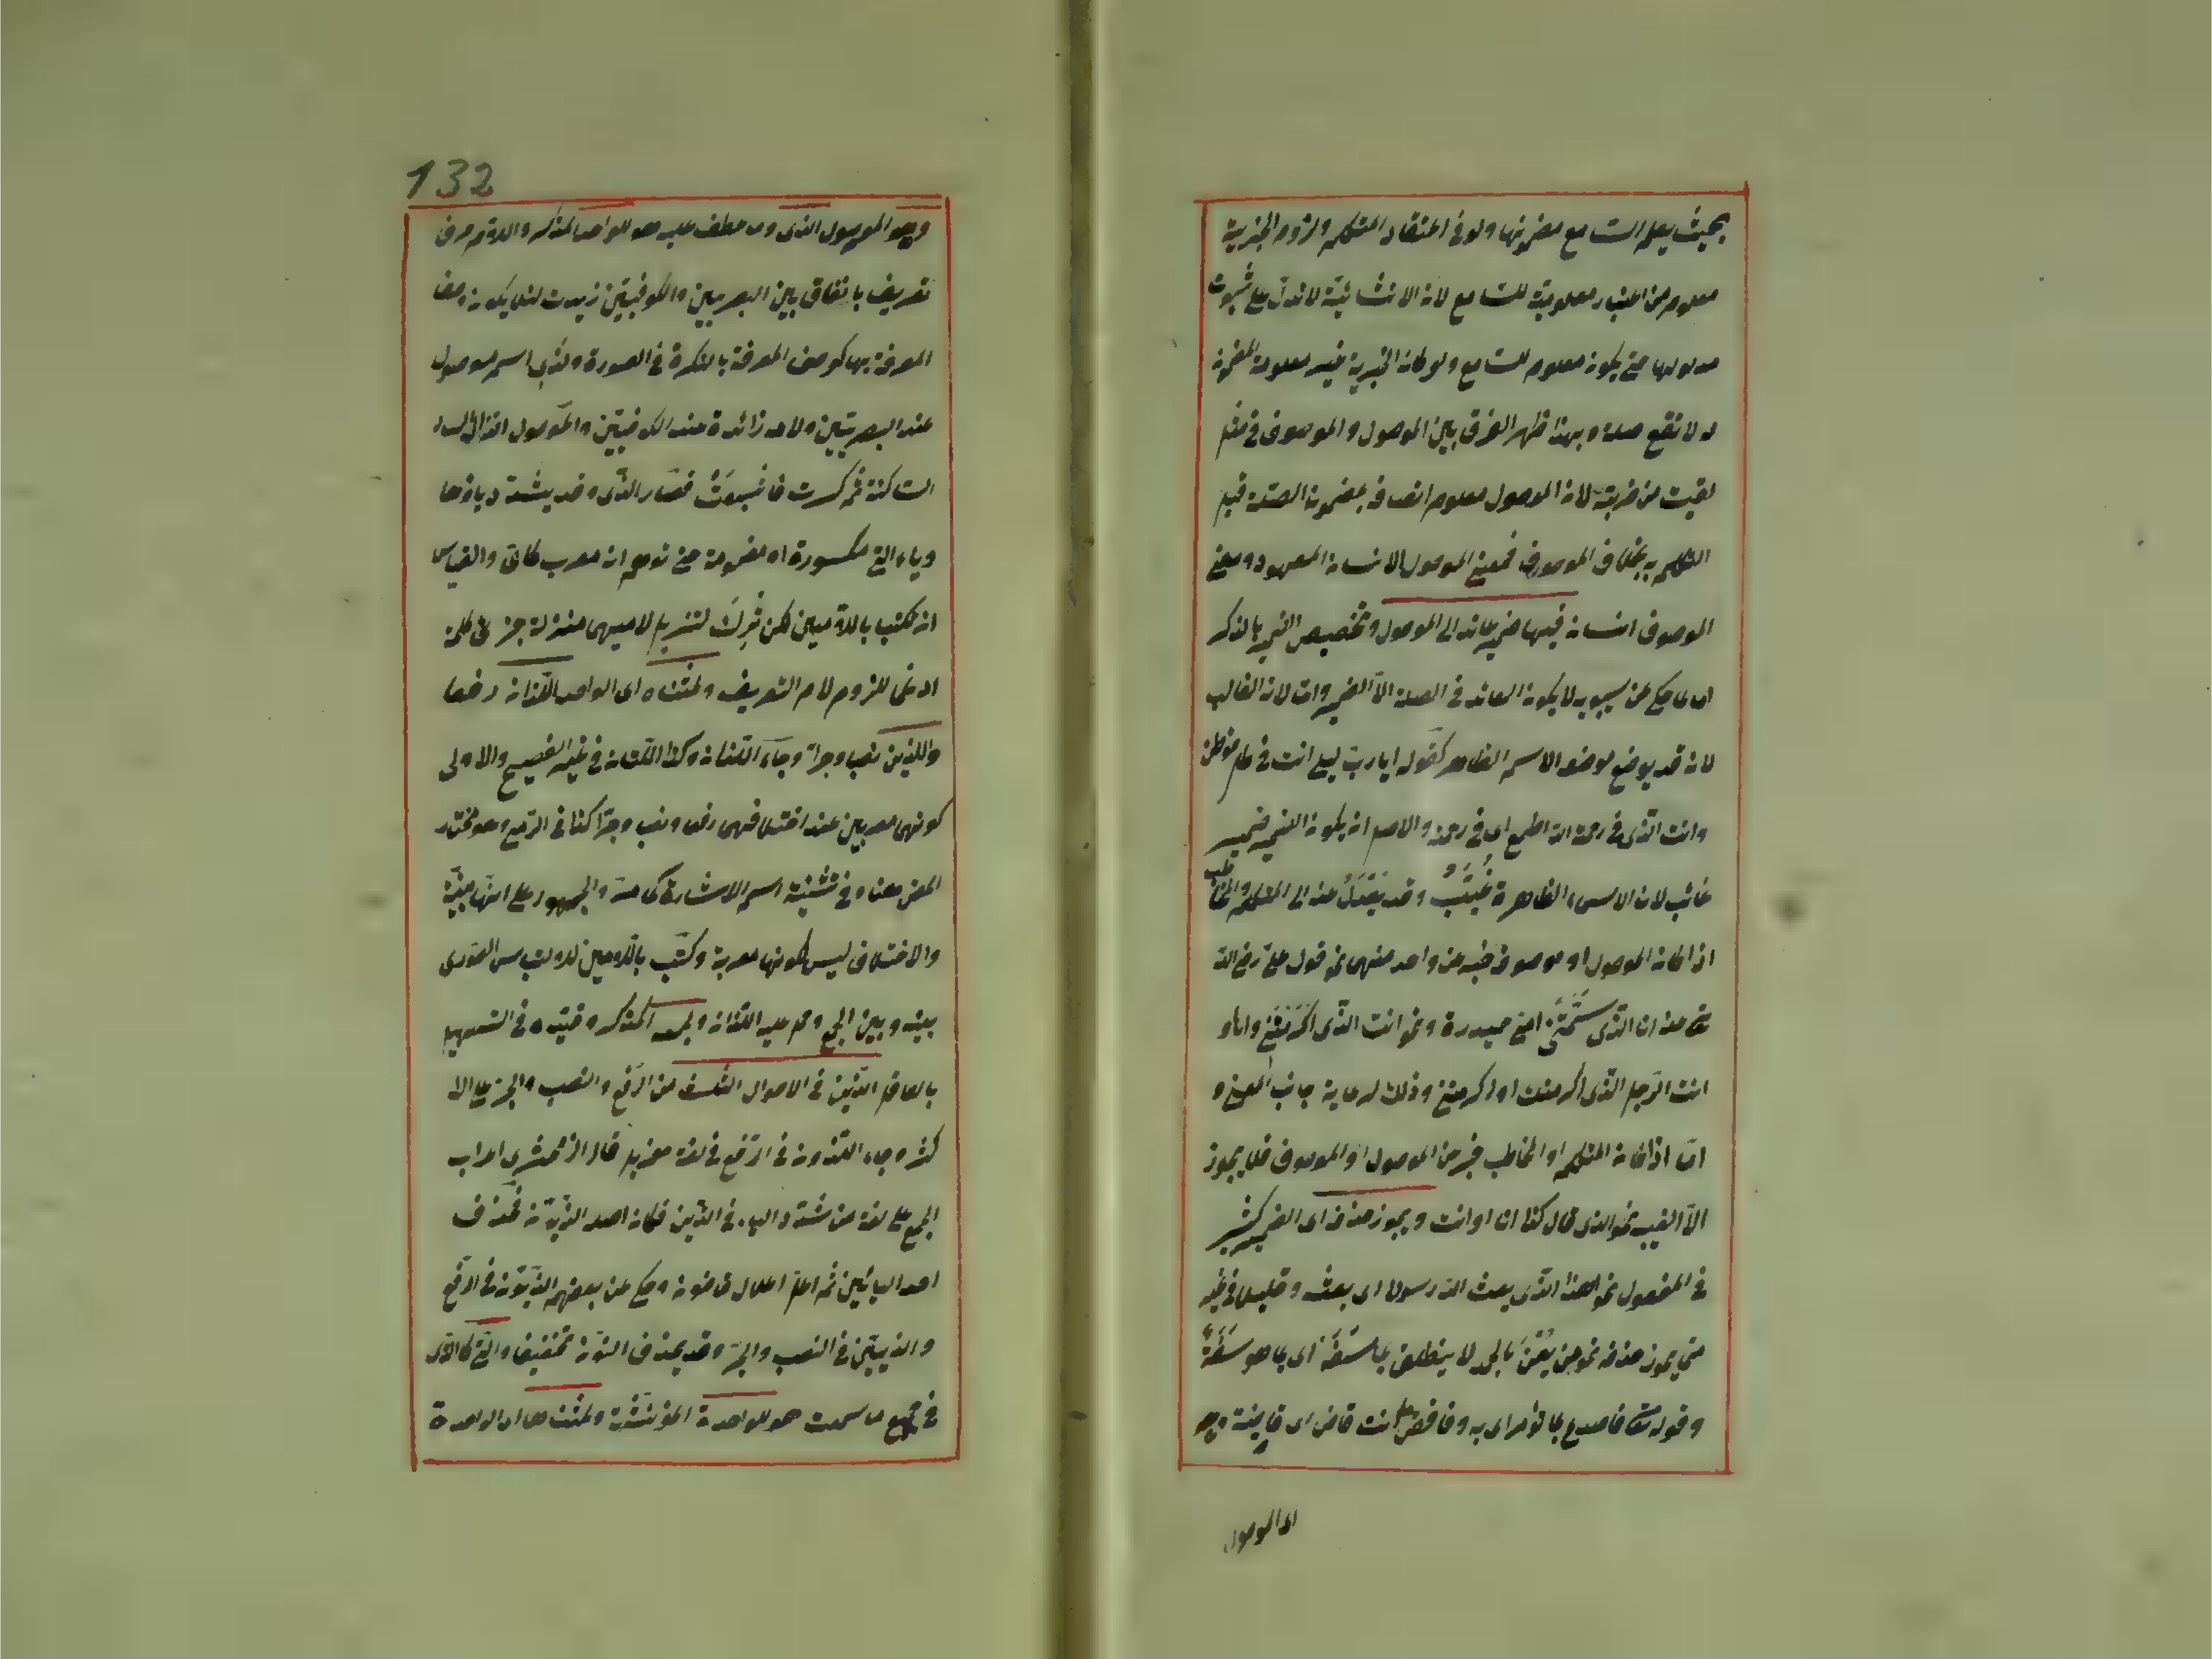 بحيث يعلم السامع مضمونها ولو في اعتقاد المتكلم ولزوم الخبرية
معلوم من اعتبار معلوميته للسامع لان الانشائية لا تدل على ثبوت
مدلولها حتى يكون معلوم للسامع ولو كان الخبرية غير معلومة المضمون
لا تقع صلة وبهذا ظهر الفرق بين الموصول والموصوف في مثل
لقيت من ضربته لان الموصول معلوم اتصافه بمضمون الصلة قبل
التكلم به بخلاف الموصوف فمعنى الموصول الانسان المعهود ومعنى
الموصوف انسان فيها ضمير عائد الى الموصول وتخصيص الضمير بالذكر
اما لما حكي عن سيبويه لا يكون العائد في الصلة الا الضمير واما لان الغالب
لانه قد يوضع موضعه الاسم الظاهر كقوله ايا رب ليلى انت في كل موطن
وانت الذي في رحمة الله اطمع اي في رحمته والاصل ان يكون الضمير ضمير
غائب لان الاسماء الظاهرة غُيَّبٌ وقد يُعْدَلُ عنه الى المتكلم والمخاطب
اذا كان الموصول او موصوفه خبرا عن واحد منهما نحو قول علي رضي الله
تعالى عنه انا الذي سَمَّتْنِي امي حيدرة ونحو انت الذي اكرمتني وانا او
انت الرجل الذي اكرمتك او اكرمتني وذلك لرعاية جانب المعنى و
امّا اذا كان المتكلم او المخاطب خبر عن الموصول او الموصوف فلا يجوز
الا الغيب نحو الذي قال كذا انا او انت ويجوز حذفه اى الضمير كثير
في المفعول نحو اهذا الذي بعث الله رسولا اى بعثه وقليلا في غيره
متى يجوز حذفه نحو من يُعْنَ بالحمد لا ينطلق بما سَفَهٌ اى بما هو سَفَهٌ
وقوله تعالى فاصدع بما تؤمر اى به وفاقض ما انت قاض اى قاضيته وهو
اى الموصول
132
وهو الموصول الذى وما عطف عليه هو للواحد المذكر واللام حرف
تعريف باتفاق بين البصريين والكوفيين زيدت لئلا يكون وصف
المعرفة بها كوصف المعرفة بالنكرة في الصورة ولذي اسم موصول
عند البصريين ولامه زائدة عند الكوفيين والموصول الذال
الساكنة ثم كسرت فاشبعت فصار الذى وقد يشدد ياؤها
وياء التي مكسورة او مضمومة حتى توهم انه معرب كاى والقياس
ان تكتب باللامين لكن تُرِكَ لتنزيل لاميهما منزلة جزئى كلمة
ادغما للزوم لام التعريف ولمثناه اى الواحد اللذان رفعا
واللذين نصبا وجرا وجاء اللذان وكذا اللتان في غير الفصيح والاولى
كونهما معربين عند اختلافهما رفعا ونصبا وجرّا كذا في الرضي وهو مختار
المص هنا وفي تثنية اسم الاشارة كما مرّ والجمهور على انّها مبنيّة
والاختلاف ليس لكونها معربة وكُتب باللامين لدولتباس الصورى
بينه وبين الجمع وحمل عليه اللتان ولجمعه المذكر وقيّده في التسهيل
بالعاقل الذين في الاحوال الثلث من الرفع والنصب والجر على الا
كثر وجاء اللذون في الرفع في لغة هذيل قال الزمخشري اعراب
الجمع على لغة من شدد الياء في الذين فكان اصله الذيّون فحذف
احد اليائين ثم اعلّ اعلال قاضون وحكى عن بعضهم الذيّون في الرفع
والذييّن في النصب والجرّ وقد يحذف النون تخفيفا والتي كالذى
في جميع ما سمعت هو للواحدة المؤنثة ولمثناها اى الواحدة